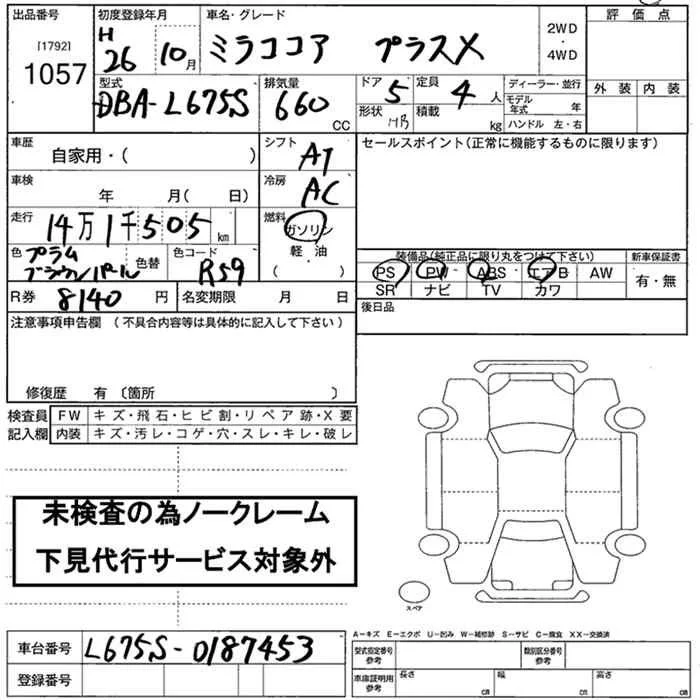 出品番号 初度登録年月 車名・グレード 評価点
[1792]
1057
H
26 10月 ミラココア プラスX 2WD
・
4WD
外装 内装
型式 排気量 ドア 定員 ディーラー・並行
DBA-L675S 660 CC 5 4人 モデル年式 年
形状 HB 積載 kg ハンドル 左・右
車歴 シフト セールスポイント(正常に機能するものに限ります)
自家用・( ) AT
車検 冷房
年 月( 日) AC
走行 燃料
14万1千505km ガソリン
色 色替 色コード 軽・油
プラム
ブラウンパール R59 ( )
装備品(純正品に限り丸をつけて下さい) 新車保証書
PS PW ABS エアB AW 有・無
SR ナビ TV カワ
R券 8140円 名変期限 月 日 後日品
注意事項申告欄 (不具合内容等は具体的に記入して下さい)
修復歴 有 〔箇所 〕
検査員 FW キズ・飛石・ヒビ割・リペア跡・X要
記入欄 内装 キズ・汚レ・コゲ・穴・スレ・キレ・破レ
未検査の為ノークレーム
下見代行サービス対象外
スペア
A-キズ E-エクボ U-凹み W-補修跡 S-サビ C-腐食 XX-交換済
車台番号 L675S-0187453 型式指定番号 参考 類別区分番号 参考
登録番号 車庫証明用 参考 長さ cm 幅 cm 高さ cm